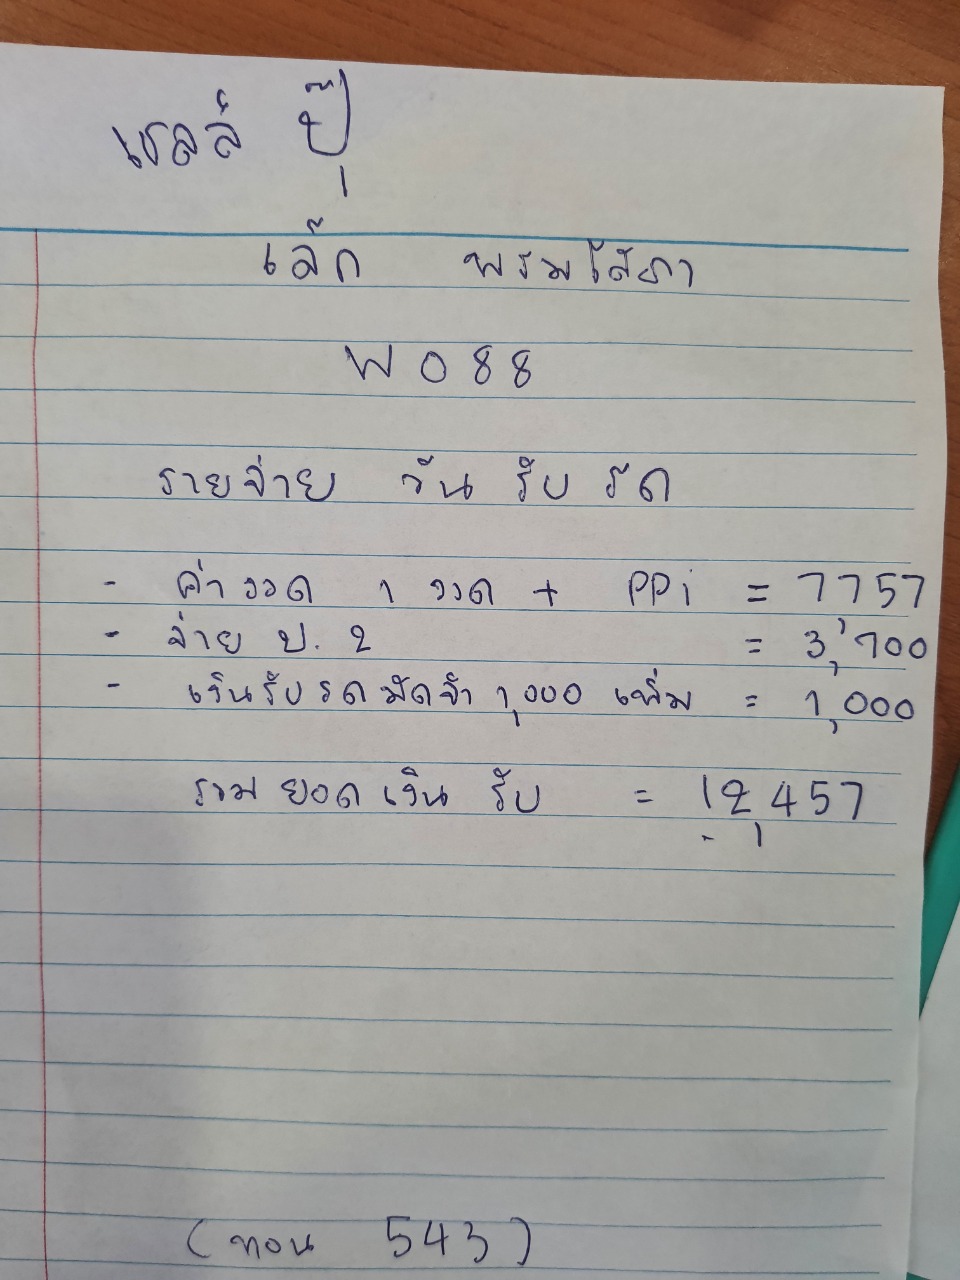 เซลล์ ปุ๊
เล็ก พรมโสภา
พ 088
รายจ่าย วันรับรถ
- ค่างวด 1 งวด + PPi = 7757
- จ่าย ป. 2 = 3,700
- เงินรับรถมัดจำ 1,000 เพิ่ม = 1,000
รวมยอดเงินรับ = 12,457
(ทอน 543)